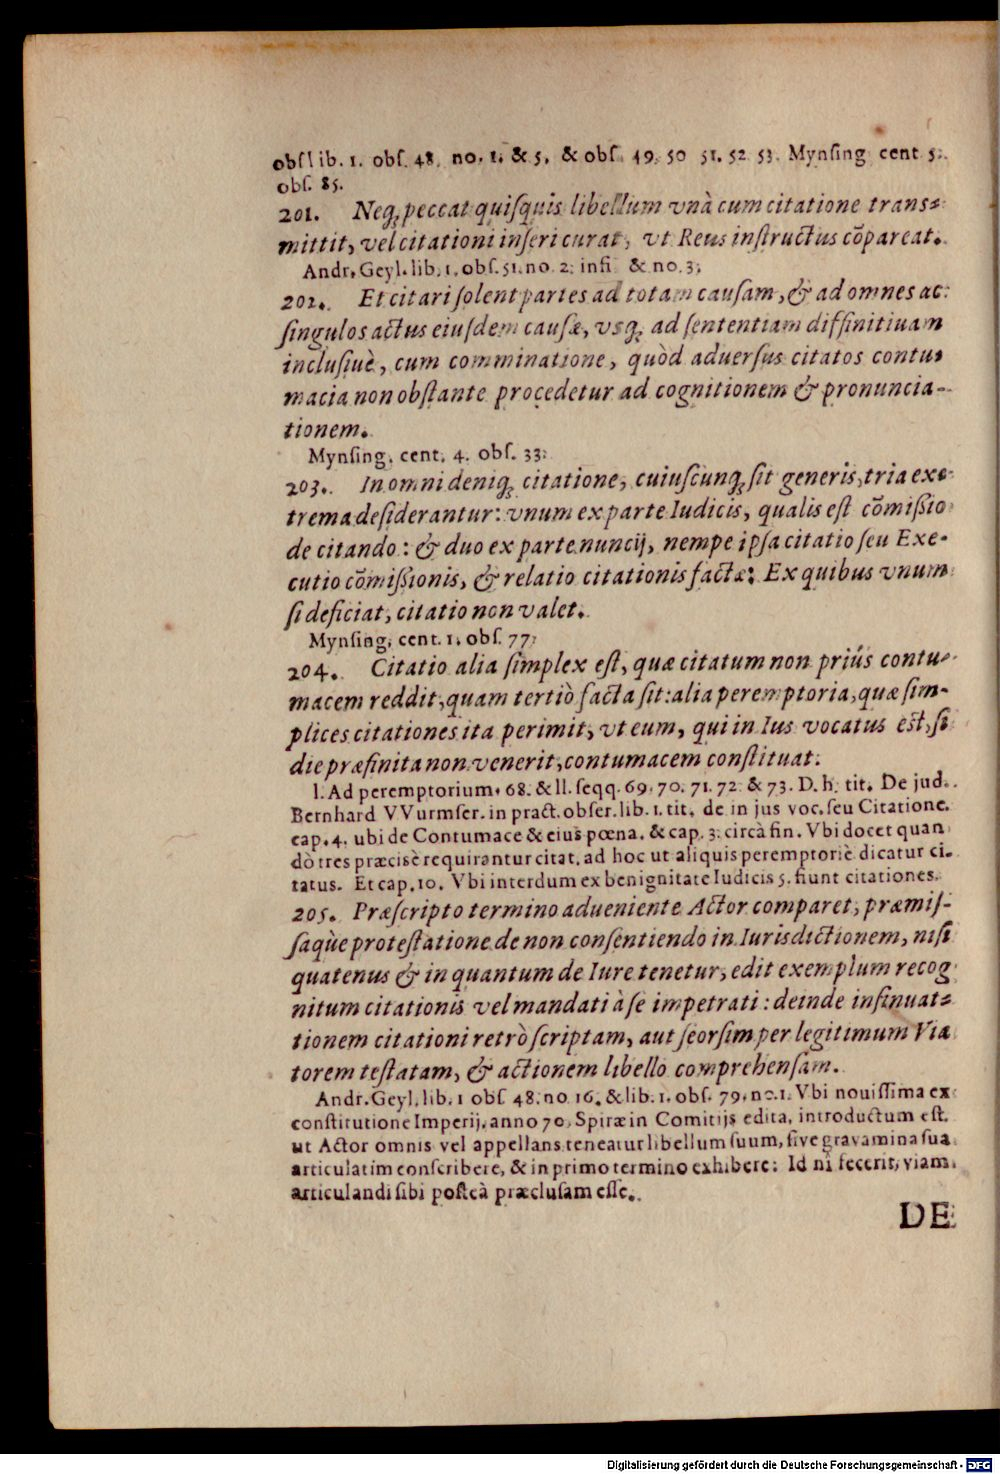 obſlib. 1. obſ. 48. no. 1. & 5. & obſ. 49. 50 51. 52 53. Mynſing cent 5.
obſ. 85.
201. Neq; peccat quiſquis libellum vnà cum citatione trans-
mittit, vel citationi inſeri curat, vt Reus inſtructus cõpareat.
Andr. Geyl. lib. 1. obſ. 51. no. 2. infi & no. 3.
202. Et citari ſolent partes ad totam cauſam, & ad omnes ac
ſingulos actus eiuſdem cauſæ, vsq; ad ſententiam diffinitiuam
incluſiuè, cum comminatione, quòd aduerſus citatos contu-
macia non obſtante procedetur ad cognitionem & pronuncia-
tionem.
Mynſing. cent. 4. obſ. 33.
203. In omni deniq; citatione, cuiuſcunq; ſit generis, tria exe-
trema deſiderantur: vnum ex parte Iudicis, qualis eſt cõmiſſio
de citando: & duo ex parte nuncij, nempe ipſa citatio ſeu Exe-
cutio cõmiſſionis, & relatio citationis factæ: Ex quibus vnum
ſi deficiat, citatio non valet.
Mynſing. cent. 1. obſ. 77.
204. Citatio alia ſimplex eſt, quæ citatum non priús contu-
macem reddit, quam tertiò facta ſit: alia peremptoria, quæ ſim-
plices citationes ita perimit, vt eum, qui in Ius vocatus eſt, ſi
die præfinita non venerit, contumacem conſtituat.
l. Ad peremptorium. 68. & ll. ſeqq. 69. 70. 71. 72. & 73. D. h. tit. De jud.
Bernhard VVurmſer. in pract. obſer. lib. 1. tit. de in jus voc. ſeu Citatione.
cap. 4. ubi de Contumace & eius pœna. & cap. 3. circà fin. Vbi docet quan
dò tres præcisè requirantur citat. ad hoc ut aliquis peremptoriè dicatur ci-
tatus. Et cap. 10. Vbi interdum ex benignitate Iudicis 5. fiunt citationes.
205. Præſcripto termino adueniente Actor comparet, præmiſ-
ſaqùe proteſtatione de non conſentiendo in Iurisdictionem, niſi
quatenus & in quantum de Iure tenetur, edit exemplum recog
nitum citationis vel mandati à ſe impetrati: deinde inſinuat-
tionem citationi retrò ſcriptam, aut ſeorſim per legitimum Via
torem teſtatam, & actionem libello comprehenſam.
Andr. Geyl. lib. 1 obſ 48. no 16. & lib. 1. obſ. 79. no. 1. Vbi nouiſſima ex
conſtitutione Imperij, anno 70. Spiræ in Comitijs edita, introductum eſt.
ut Actor omnis vel appellans teneatur libellum ſuum, ſive gravamina ſua
articulatim conſcribere, & in primo termino exhibere: Id nì fecerit, viam
articulandi ſibi poſteà præcluſam eſſe.
DE
Digitalisierung gefördert durch die Deutsche Forschungsgemeinschaft - DFG